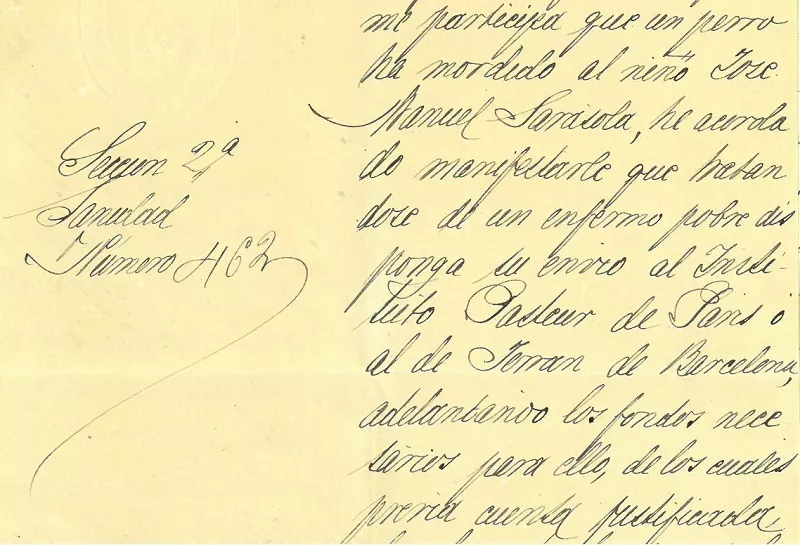 Seccion 2ª
Sanidad
Número 462
me participa que un perro
ha mordido al niño Jose
Manuel Sarasola, he acorda
do manifestarle que tratan
dose de un enfermo pobre dis
ponga su envio al Insti-
tuto Pasteur de Paris o
al de Ferran de Barcelona,
adelantando los fondos nece
sarios para ello, de los cuales
previa cuenta justificada,